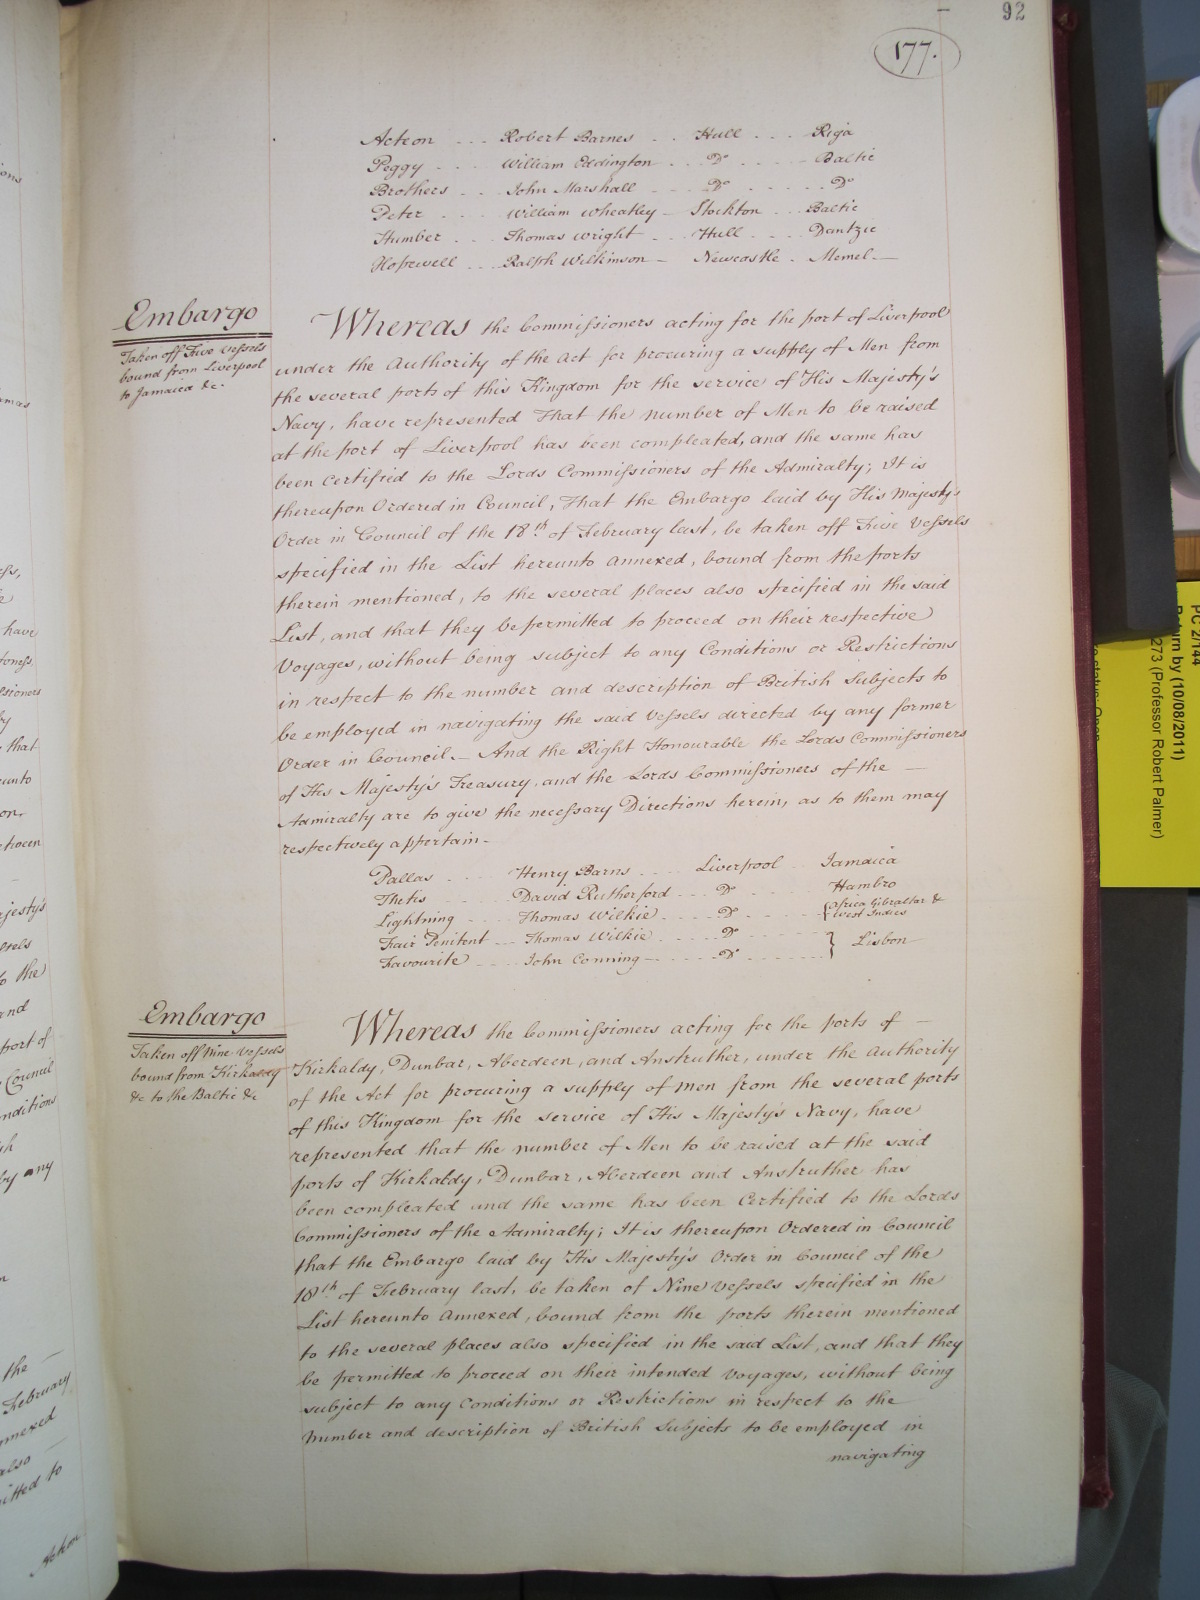 92
177.
Acteon --- Robert Barnes -- Hull --- Riga
Peggy --- William Eddington --- Do ---- Baltic
Brothers --- John Marshall --- Do ---- Do
Peter --- William Wheatley - Stockton --- Baltic
Humber --- Thomas Wright --- Hull ---- Dantzic
Hopewell --- Ralph Wilkinson - Newcastle - Memel -
Embargo
Taken off Five Vessels
bound from Liverpool
to Jamaica &c.
Whereas the Commissioners acting for the port of Liverpool
under the Authority of the Act for procuring a supply of Men from
the several ports of this Kingdom for the service of His Majesty's
Navy, have represented That the number of Men to be raised
at the port of Liverpool has been compleated, and the same has
been certified to the Lords Commissioners of the Admiralty; It is
thereupon Ordered in Council, That the Embargo laid by His Majesty's
Order in Council of the 18th of February last, be taken off Five Vessels
specified in the List hereunto annexed, bound from the ports
therein mentioned, to the several places also specified in the said
List, and that they be permitted to proceed on their respective
Voyages, without being subject to any Conditions or Restrictions
in respect to the number and description of British Subjects to
be employed in navigating the said Vessels directed by any former
Order in Council. - And the Right Honourable the Lords Commissioners
of His Majesty's Treasury, and the Lords Commissioners of the -
Admiralty are to give the necessary Directions herein, as to them may
respectively appertain. -
Pallas ---- Henry Barns --- Liverpool -- Jamaica
Thetis ---- David Rutherford --- Do ---- Hambro
Lightning ---- Thomas Wilkie ---- Do ---- { Africa Gibraltar & West Indies
Fair Penitent -- Thomas Wilkie ---- Do ---- } Lisbon
Favourite ---- John Conning ---- Do ----
Embargo
Taken off Nine Vessels
bound from Kirkaldy
&c to the Baltic &c
Whereas the Commissioners acting for the ports of -
Kirkaldy, Dunbar, Aberdeen, and Anstruther, under the Authority
of the Act for procuring a supply of men from the several ports
of this Kingdom for the service of His Majesty's Navy, have
represented that the number of Men to be raised at the said
ports of Kirkaldy, Dunbar, Aberdeen and Anstruther has
been compleated and the same has been Certified to the Lords
Commissioners of the Admiralty; It is thereupon Ordered in Council
that the Embargo laid by His Majesty's Order in Council of the
18th of February last, be taken of Nine Vessels specified in the
List hereunto Annexed, bound from the ports therein mentioned
to the several places also specified in the said List, and that they
be permitted to proceed on their intended Voyages, without being
subject to any Conditions or Restrictions in respect to the
number and description of British Subjects to be employed in
navigating
PC 2/144
Return by (10/08/2011)
273 (Professor Robert Palmer)